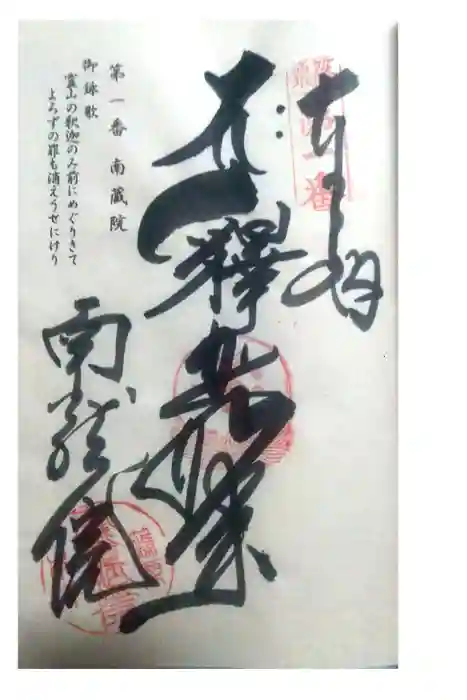 奉拝
釋迦如来
第一番 南蔵院
御詠歌
霊山の釈迦のみ前にめぐりきて
よろずの罪も消えうせにけり
南蔵院